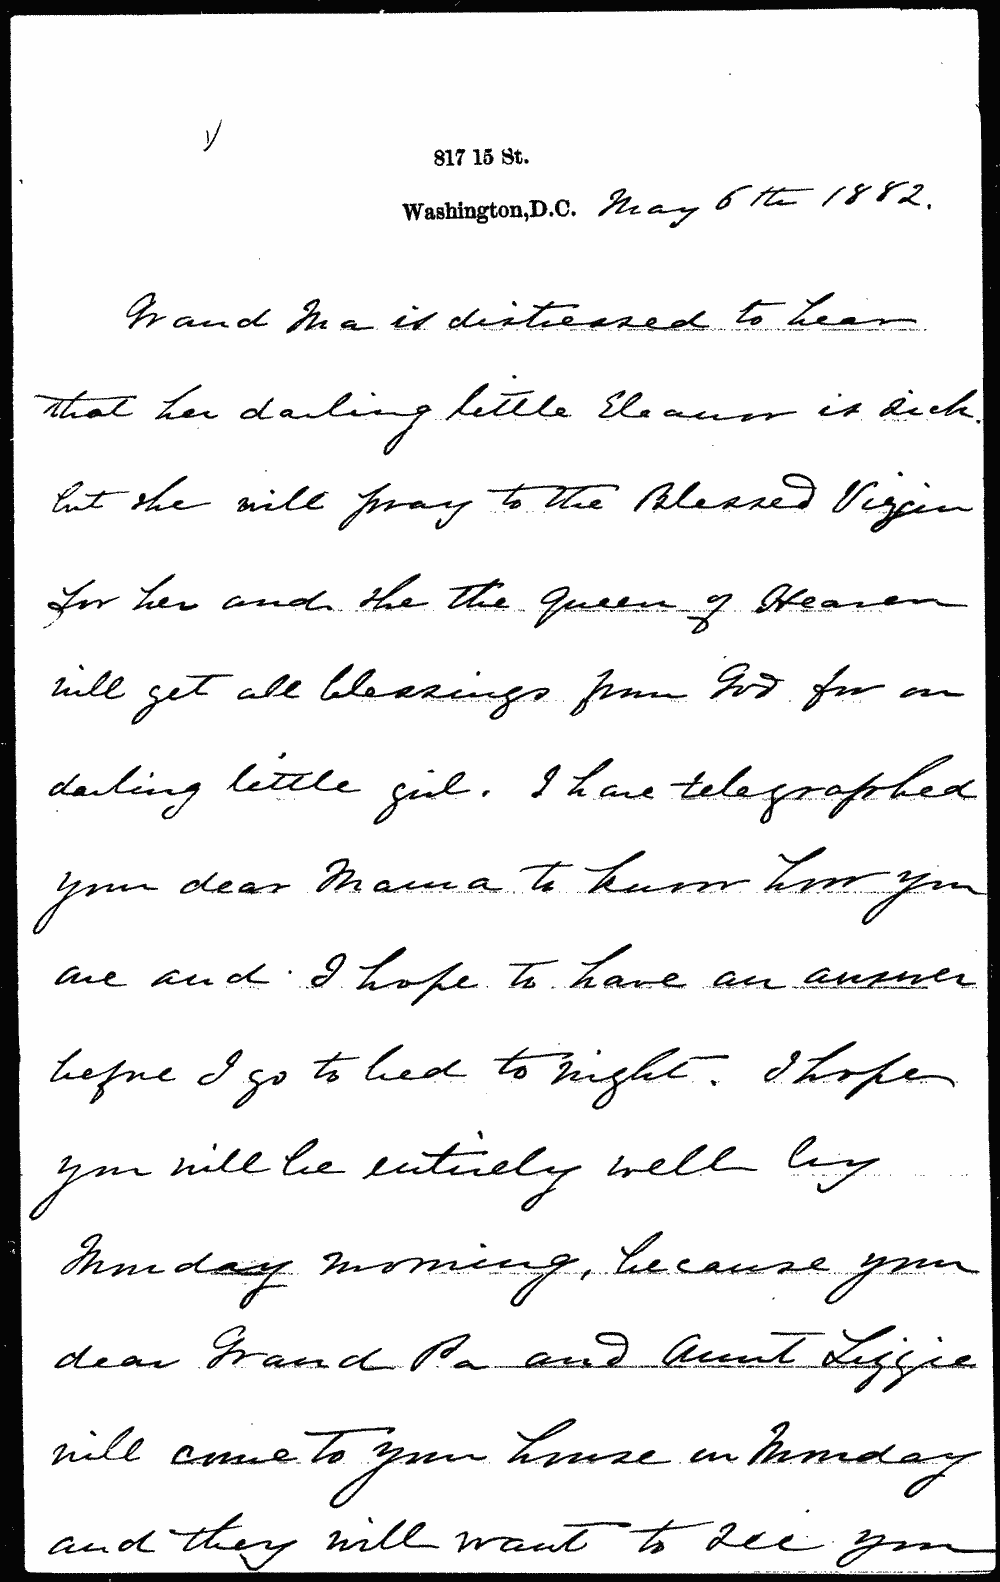 817 15 St.
Washington, D.C. May 6th 1882.
Grand Ma is distressed to hear
that her darling little Eleanor is sick.
but she will pray to the Blessed Virgin
for her and she the Queen of Heaven
will get all blessings from God for our
darling little girl. I have telegraphed
your dear Mama to know how you
are and I hope to have an answer
before I go to bed to night. I hope
you will be entirely well by
Monday morning, because your
dear Grand Pa and Aunt Lizzie
will come to your house on Monday
and they will want to see you